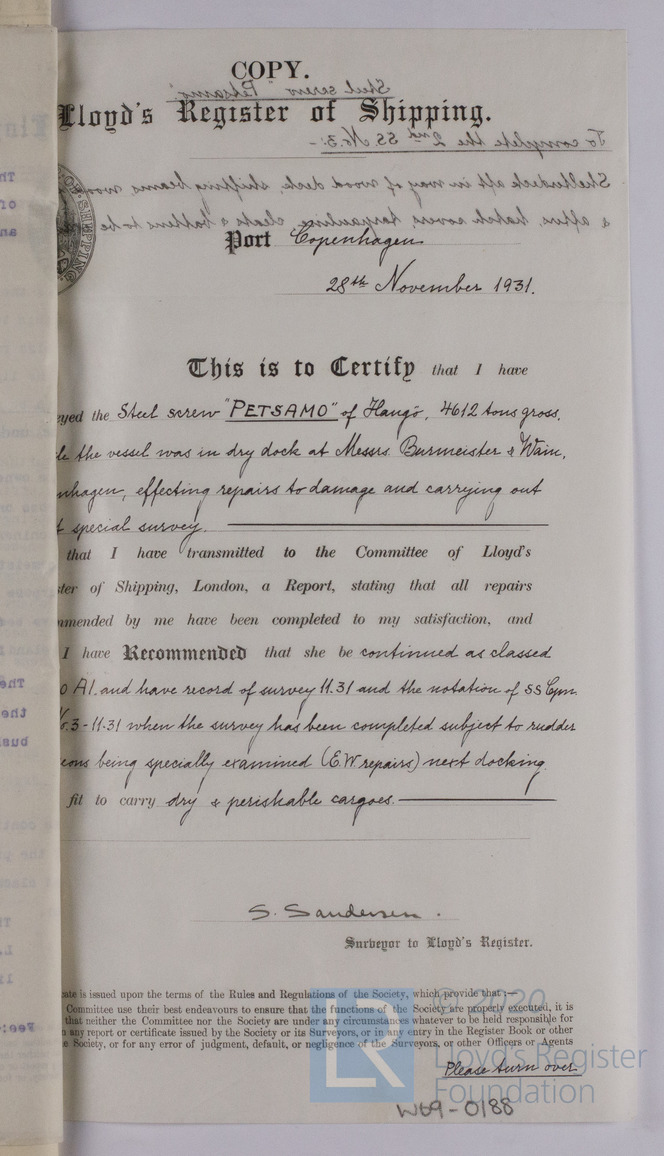 COPY.
Steel screw "Petsamo"
Lloyd's Register of Shipping.
To complete the 2nd SS. No. 3:-
Shelterdeck aft in way of wood deck, shifting beams
& afters, hatch covers, tarpaulins, cleats & battens to be
Port Copenhagen
28th November 1931.
This is to Certify that I have
eyed the Steel screw "PETSAMO" of Hangö, 4612 tons gross,
le the vessel was in dry dock at Messrs. Burmeister & Wain,
nhagen, effecting repairs to damage and carrying out
t special survey.
that I have transmitted to the Committee of Lloyd's
ter of Shipping, London, a Report, stating that all repairs
mmended by me have been completed to my satisfaction, and
I have Recommended that she be continued as classed
0 A1. and have record of survey 11.31 and the notation of SS Cpn.
No. 3-11.31 when the survey has been completed subject to rudder
eons being specially examined (E.W repairs) next docking.
fit to carry dry & perishable cargoes.
S. Sandersen.
Surveyor to Lloyd's Register.
cate is issued upon the terms of the Rules and Regulations of the Society, which provide that:—
Committee use their best endeavours to ensure that the functions of the Society are properly executed, it is
that neither the Committee nor the Society are under any circumstances whatever to be held responsible for
n any report or certificate issued by the Society or its Surveyors, or in any entry in the Register Book or other
e Society, or for any error of judgment, default, or negligence of the Surveyors, or other Officers or Agents
Please turn over
© 2020
LR Lloyd's Register
Foundation
W69-0188